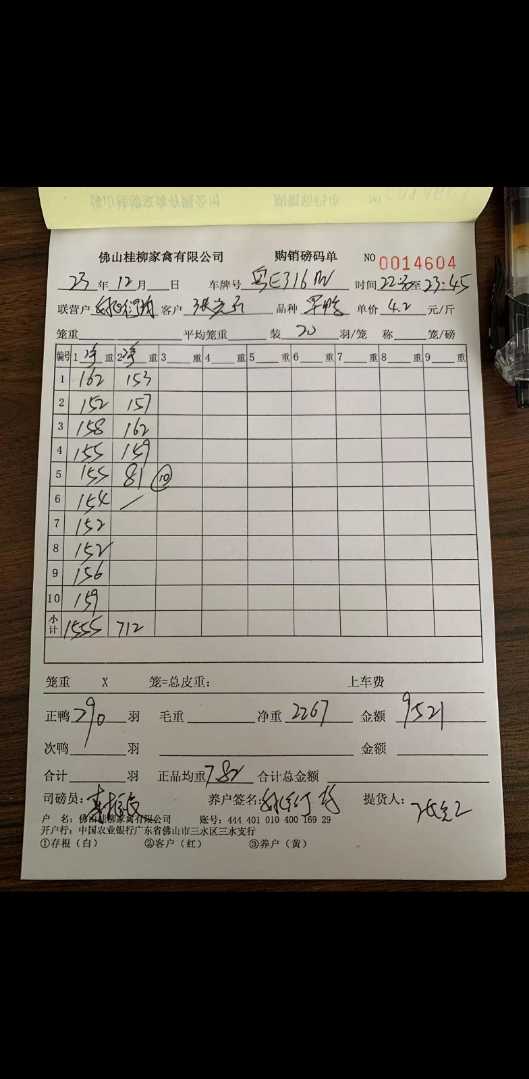 佛山桂柳家禽有限公司 购销磅码单 NO 0014604
23 年 12 月 日 车牌号 粤E316 时间 22: 至 23:45
联营户 客户 品种 单价 4.2 元/斤
笼重 平均笼重 装 20 羽/笼 称 笼/磅
编号 1 净 重 2 净 重 3 重 4 重 5 重 6 重 7 重 8 重 9 重
1 162 153
2 152 157
3 158 162
4 155 159
5 155 81 ⑩
6 154 /
7 152
8 152
9 156
10 159
小计 1555 712
笼重 X 笼=总皮重: 上车费
正鸭 290 羽 毛重 净重 2267 金额 9521
次鸭 羽 金额
合计 羽 正品均重 7.82 合计总金额
司磅员: 养户签名: 提货人:
户 名: 佛山桂柳家禽有限公司 账号: 444 401 010 400 169 29
开户行: 中国农业银行广东省佛山市三水区三水支行
①存根(白) ②客户(红) ③养户(黄)